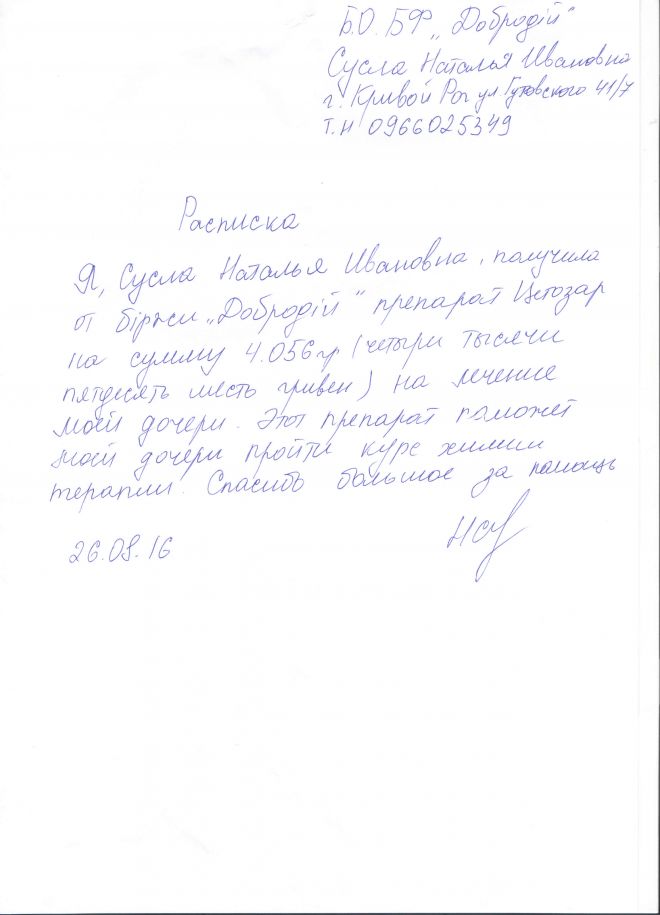 Б.О. БФ „Добродій"
Сусла Наталья Ивановна
г. Кривой Рог ул. Гутовского 41/7
т.н 0966025349
Расписка
Я, Сусла Наталья Ивановна, получила
от біржи „Добродій" препарат Цитозар
на сумму 4.056 гр (четыри тысячи
пятдесять шесть гривен) на лечение
моей дочери. Этот препарат поможет
моей дочери пройти курс химии
терапии. Спасибо большое за помощь
26.08.16